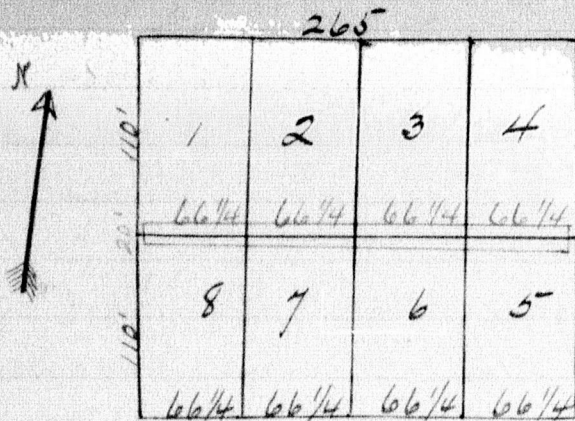 265
N
110'
1 2 3 4
66 1/4 66 1/4 66 1/4 66 1/4
20'
8 7 6 5
110'
66 1/4 66 1/4 66 1/4 66 1/4